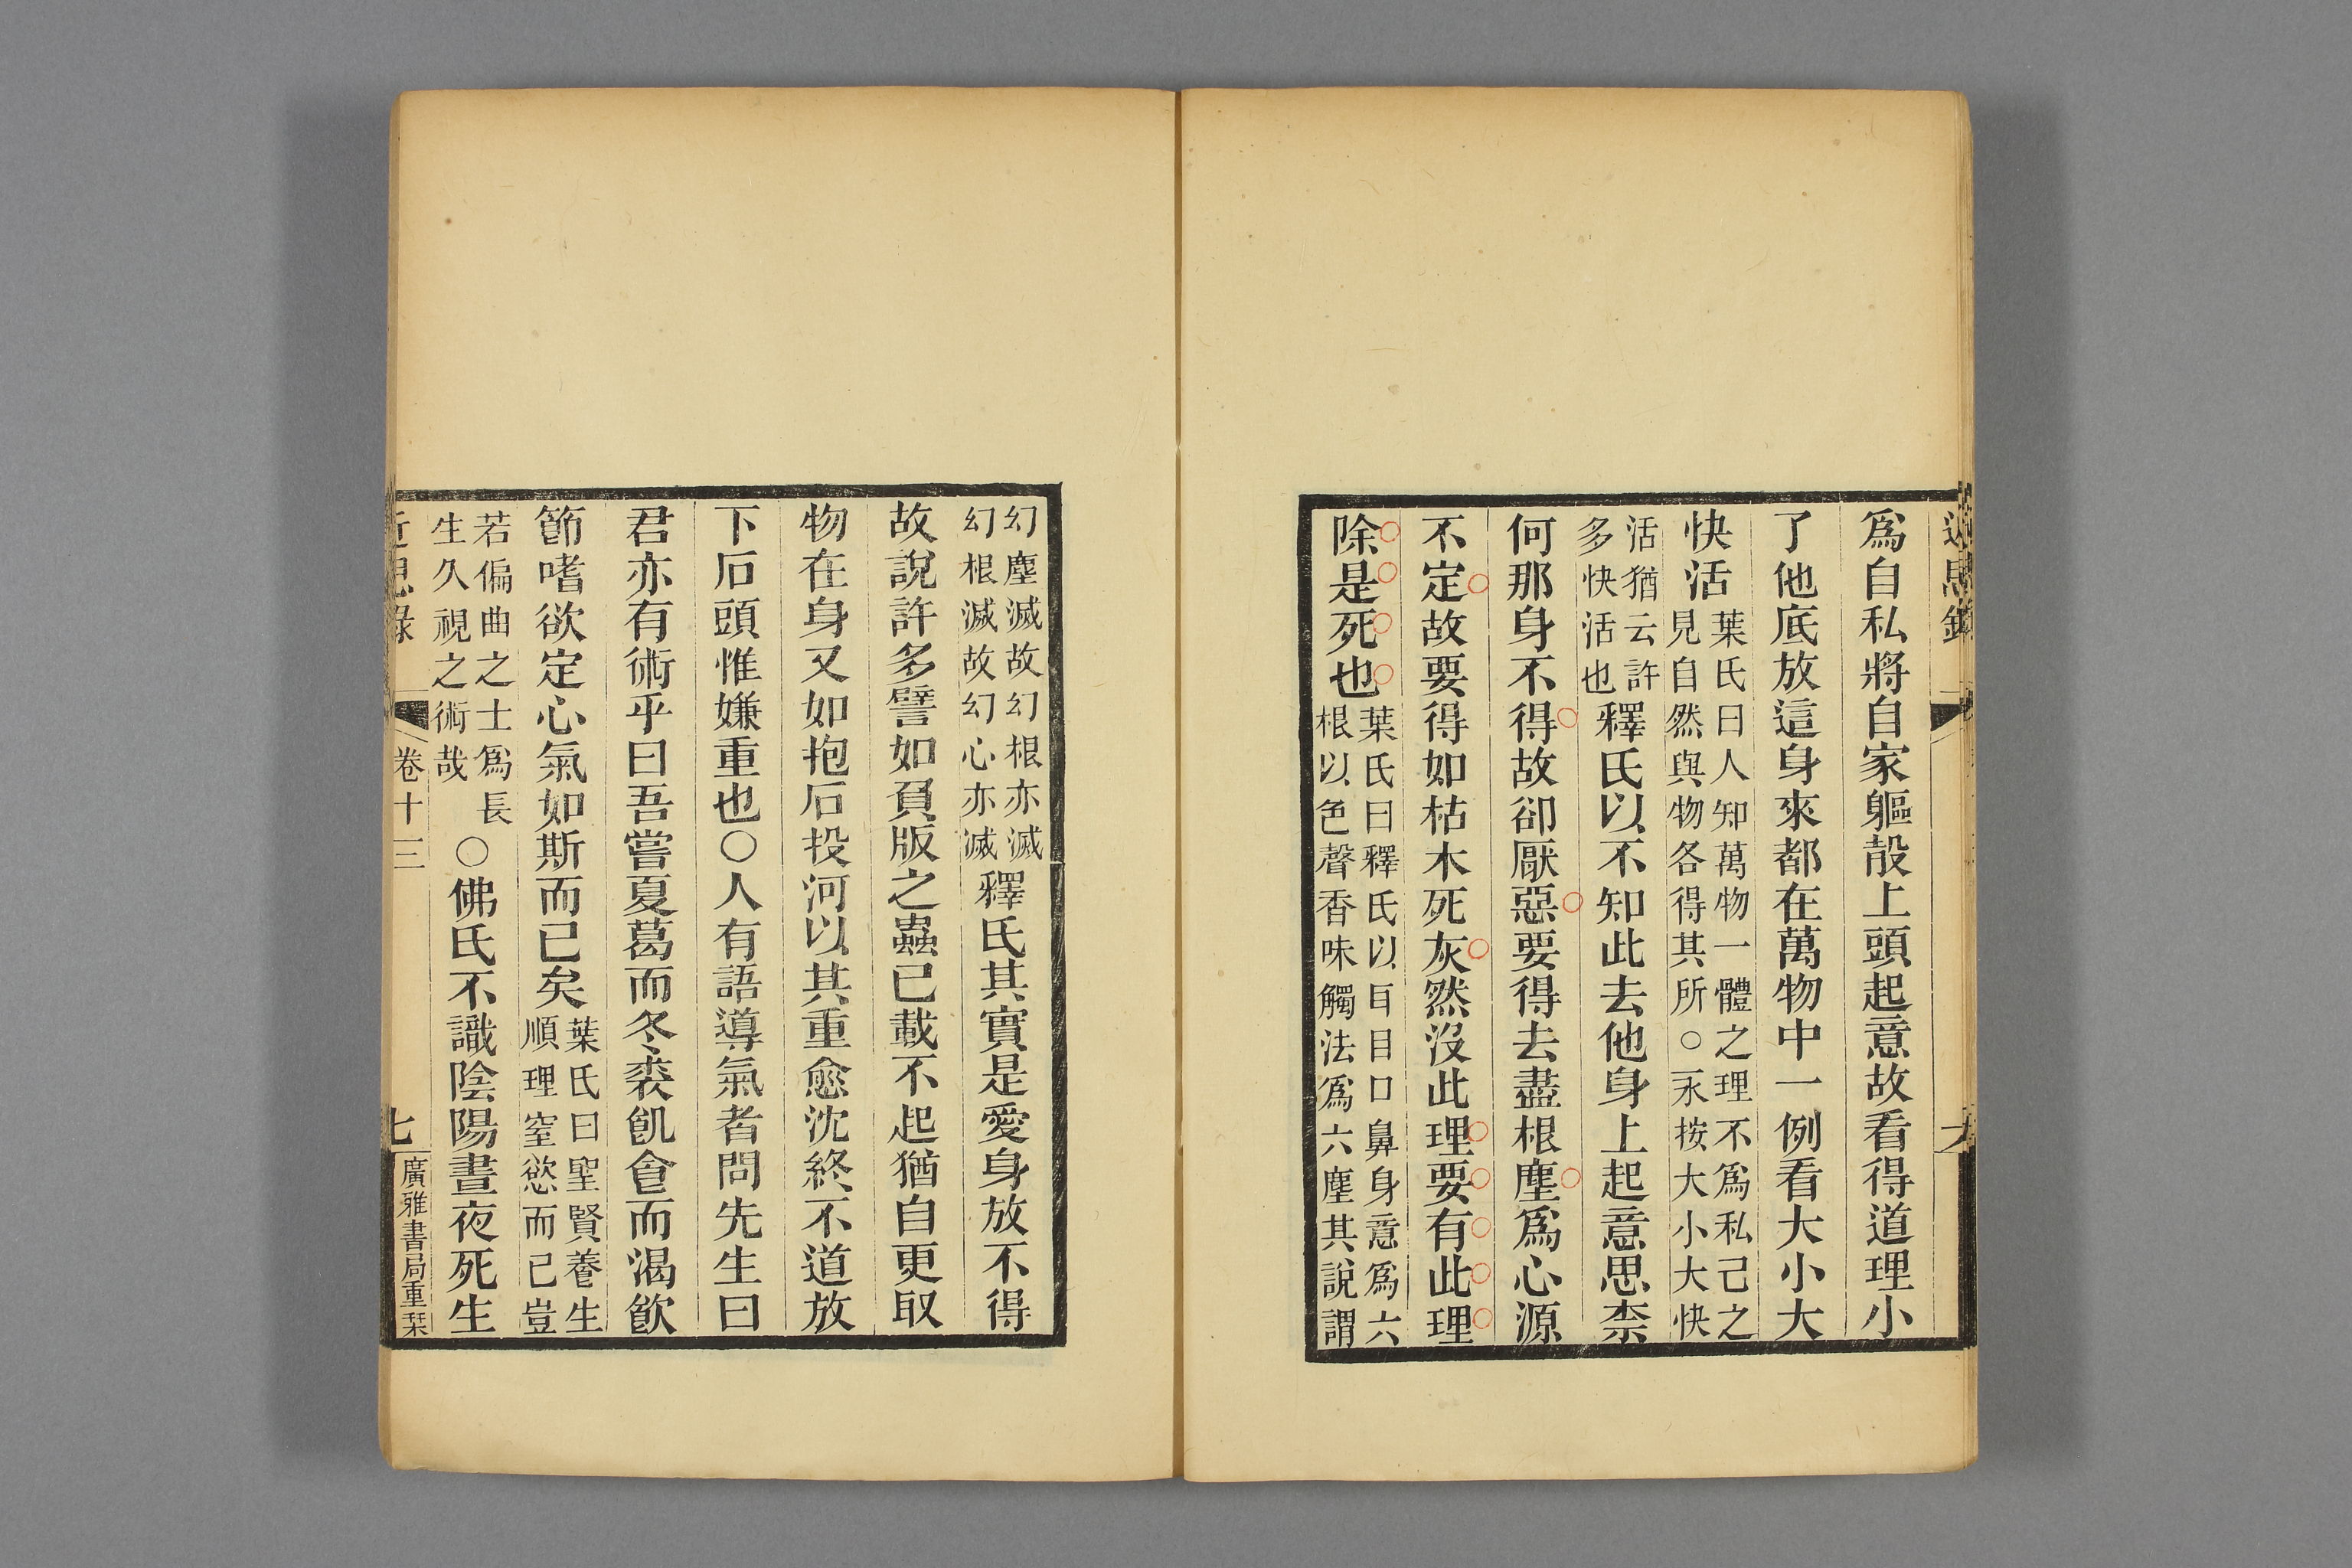 為自私將自家軀殻上頭起意故看得道理小
了他底放這身來都在萬物中一例看大小大
快活
葉氏曰人知萬物一體之理不為私己之
見自然與物各得其所○永按大小大快
活猶云許
多快活也
釋氏以不知此去他身上起意思柰
何那身不得故卻厭惡要得去盡根塵為心源
不定故要得如枯木死灰然沒此理要有此理
除是死也
葉氏曰釋氏以耳目口鼻身意為六
根以色聲香味觸法為六塵其說謂
幻塵滅故幻根亦滅
幻根滅故幻心亦滅
釋氏其實是愛身放不得
故說許多譬如負版之蟲已載不起猶自更取
物在身又如抱石投河以其重愈沈終不道放
下石頭惟嫌重也○人有語導氣者問先生曰
君亦有術乎曰吾嘗夏葛而冬裘飢食而渴飲
節嗜欲定心氣如斯而已矣
葉氏曰聖賢養生
順理窒慾而已豈
若偏曲之士為長
生久視之術哉
○佛氏不識陰陽晝夜死生
近思錄
卷十三
七
廣雅書局重栞